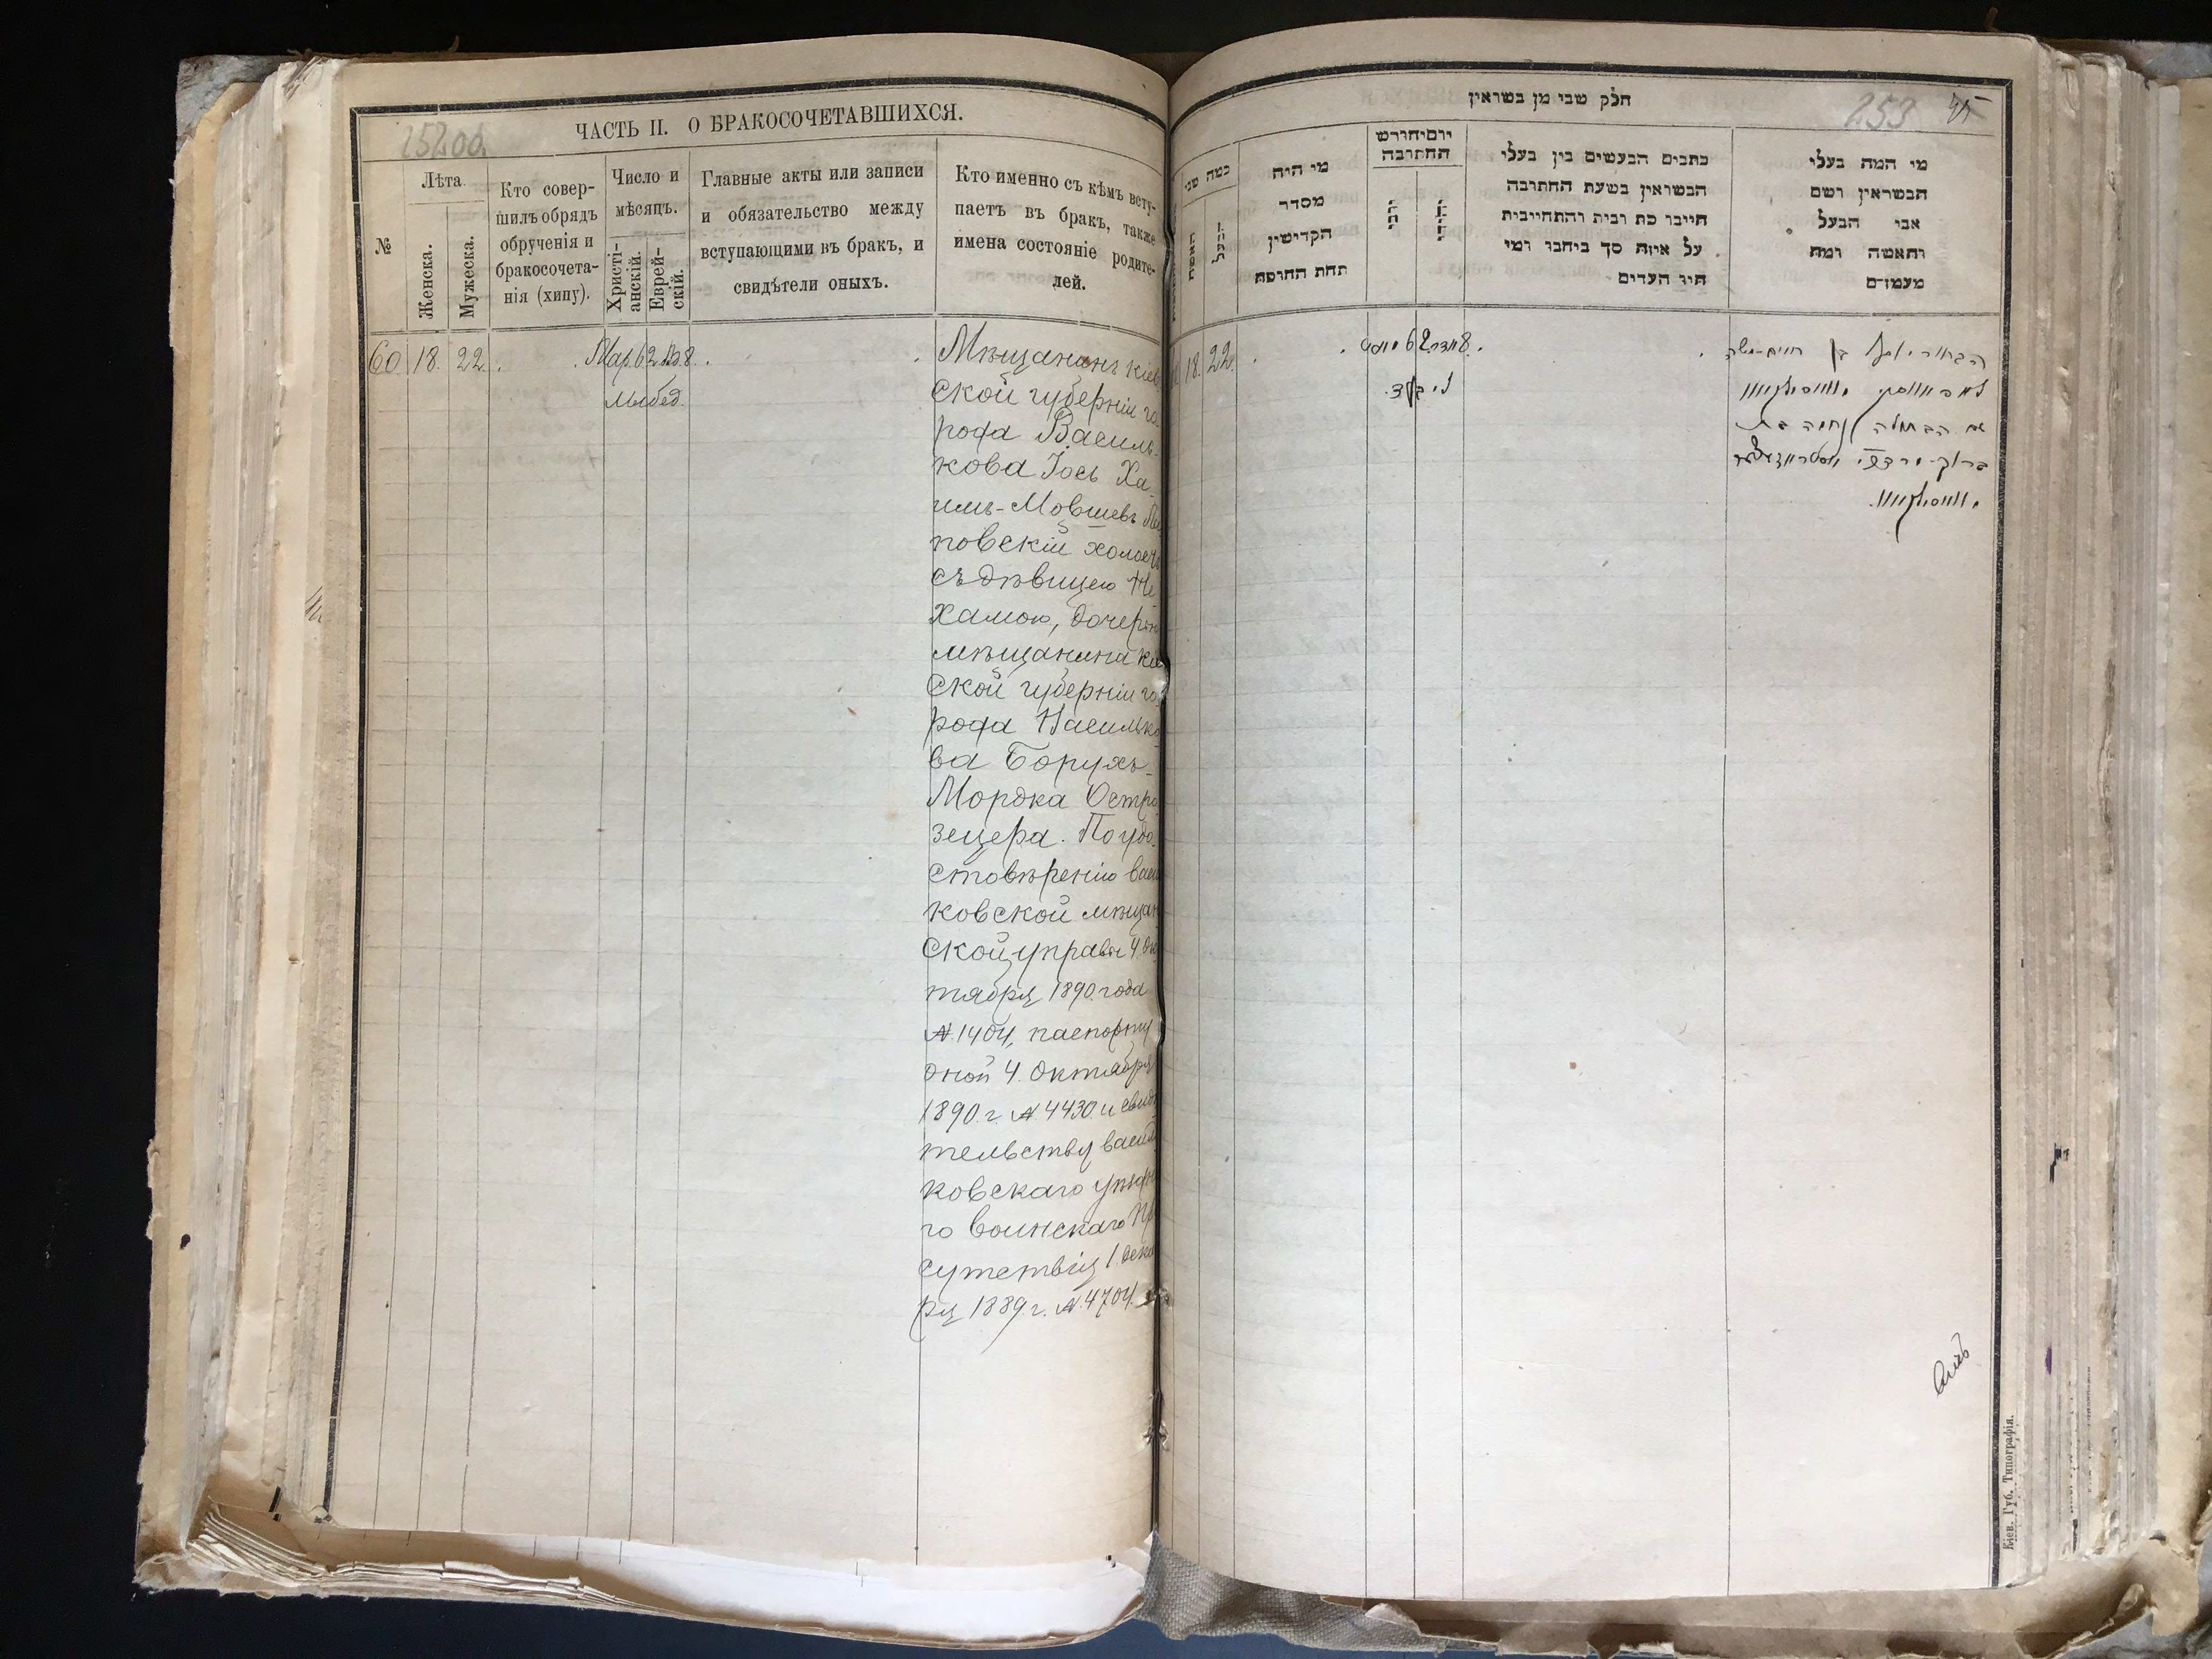 252об.
ЧАСТЬ II. О БРАКОСОЧЕТАВШИХСЯ.
№
Лѣта.
Женска.
Мужеска.
Кто совер-
шилъ обрядъ
обрученія и
бракосочета-
нія (хипу).
Число и
мѣсяцъ.
Христі-
анскій.
Еврей-
скій.
Главные акты или записи
и обязательство между
вступающими въ бракъ, и
свидѣтели оныхъ.
Кто именно съ кѣмъ всту-
паетъ въ бракъ, также
имена состояніе родите-
лей.
60. 18. 22.
Мѣщанинъ кіев
ской губерніи го
рода Василь-
кова Іось Ха-
имъ-Мовшевъ
повскій холост
съ дѣвицею Не
хамою, дочерью
мѣщанина кіев
ской губерніи го
рода Василько
ва Борухъ-
Мордка Остро
зецера. По удо-
стовѣренію васи
ковской мѣщан
ской управы 4 Ок
тября 1890 года
№ 1404, паспорту
дной 4 Октября
1890 г. № 4430 и свидѣ
тельству василь
ковскаго уѣздна
го воинскаго При
сутствія 1 Декаб
ря 1889 г. № 4704.
חלק שני מן נשואין
253
כמה שני
האשה
הבעל
מי היה
מסדר
הקדישין
תחת החופה
יום וחודש
החתונה
כתבים הנעשים בין בעלי
הנשואין בשעת החתונה
חייבו סת ובית והתחייבות
על איזה סך ביחבו ומי
היו העדים
מי המה בעלי
הנשואין ושם
אבי הבעל
והאשה ומה
מעמדם
18. 22.
הבחור יוסף בן חיים-משה
עם הבתולה נחמה בת
ברוך-מרדכי
Кіев. Губ. Типографія.